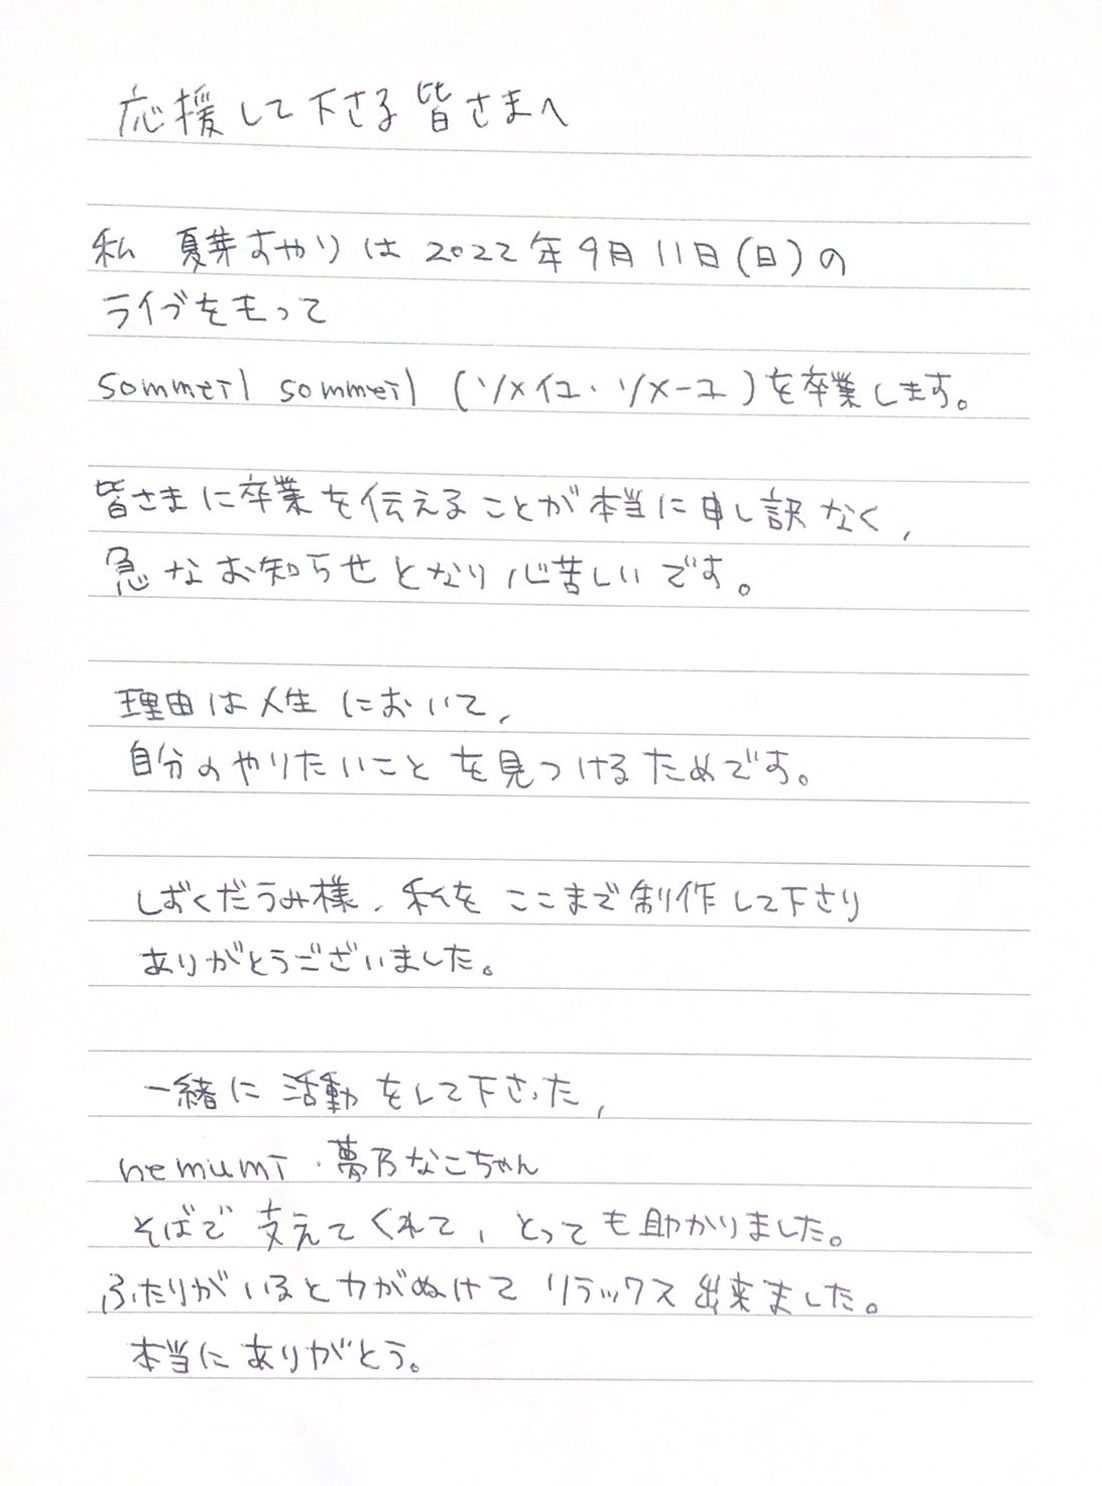 応援して下さる皆さまへ
私 夏芽すやりは2022年9月11日(日)の
ライブをもって
sommeil sommeil (ソメイユ・ソメーユ)を卒業します。
皆さまに卒業を伝えることが本当に申し訳なく、
急なお知らせとなり心苦しいです。
理由は人生において、
自分のやりたいことを見つけるためです。
しずくだうみ様、私をここまで制作して下さり
ありがとうございました。
一緒に活動をして下さった、
nemumi・夢乃なこちゃん
そばで支えてくれて、とっても助かりました。
ふたりがいると力がぬけてリラックス出来ました。
本当にありがとう。